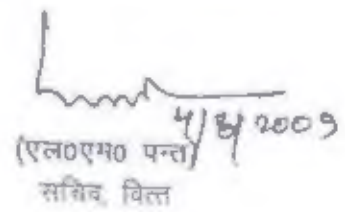 4/8/2009
(एल०एम० पन्त)
सचिव, वित्त